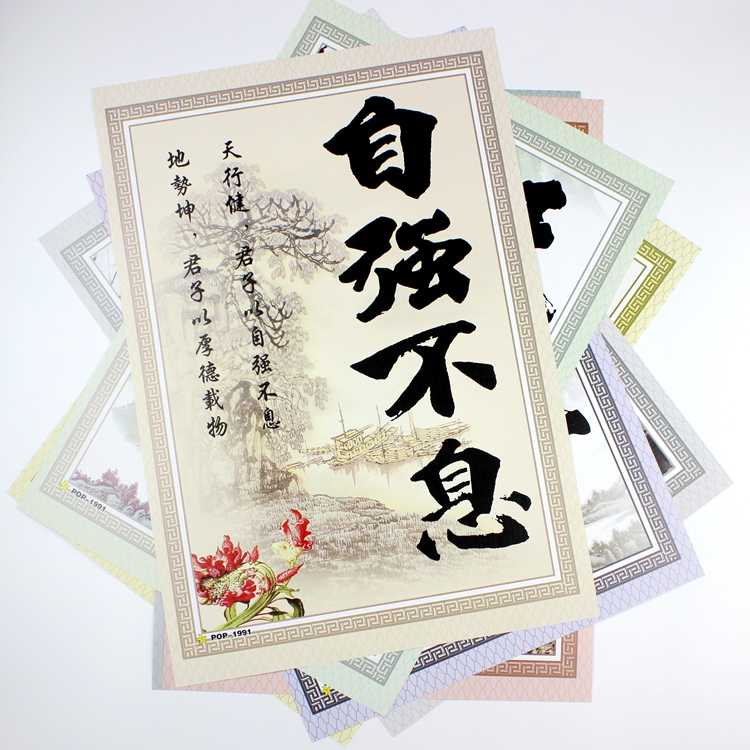 自强不息
天行健，君子以自强不息
地勢坤，君子以厚德載物
POP-1991
POP-1991